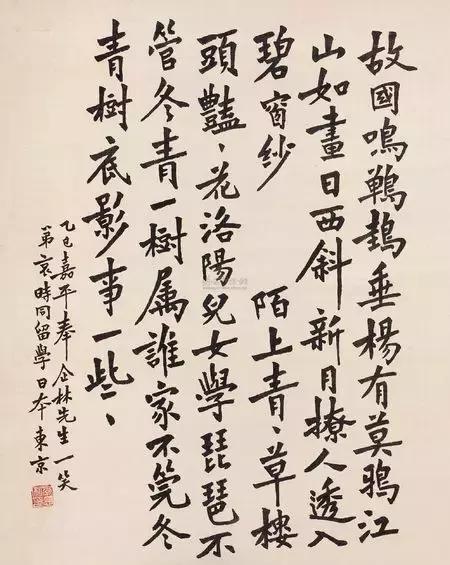 故國鳴鵜鴂垂楊有莫鴉江
山如畫日西斜新月撩人透入
碧窗紗　陌上青、草樓
頭豔、花洛陽兒女學琵琶不
管冬青一樹属誰家不筦冬
青樹底影事一些、
乙巳嘉平奉企林先生一笑
弟哀時同留學日本東京